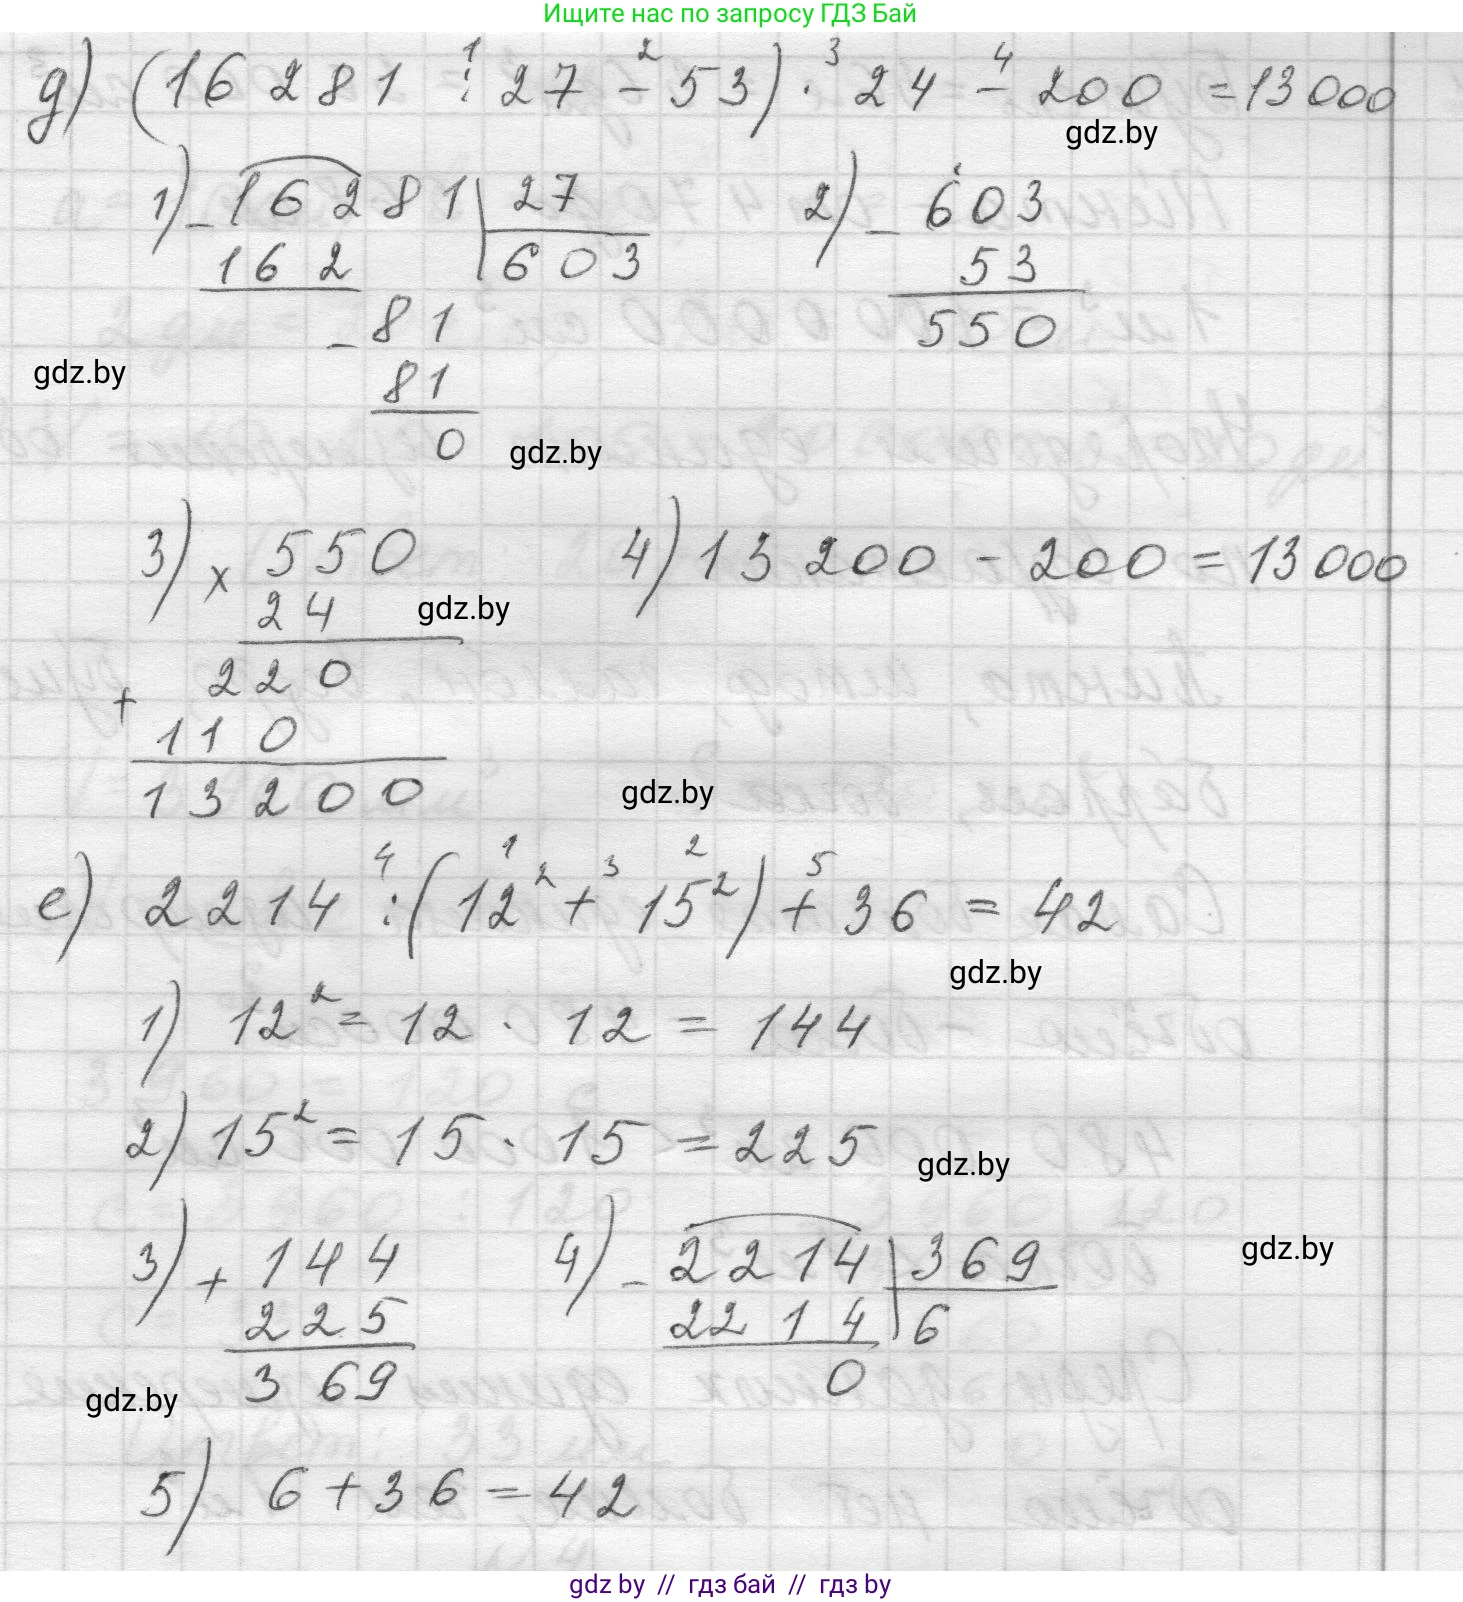 Ищите нас по запросу ГДЗ Бай
1 2 3 4
д) (16281 : 27 - 53) · 24 - 200 = 13000
gdz.by
1) - 16281 | 27
162 | 603
- 81
81
0
2) - 603
53
550
gdz.by
gdz.by
3) x 550
24
+ 220
110
13200
gdz.by
4) 13200 - 200 = 13000
gdz.by
4 1 3 2 5
е) 2214 : (12² + 15²) + 36 = 42
gdz.by
1) 12² = 12 · 12 = 144
2) 15² = 15 · 15 = 225
gdz.by
3) + 144
225
369
4) - 2214 | 369
2214 | 6
0
gdz.by
gdz.by
5) 6 + 36 = 42
gdz by // гдз бай // гдз by